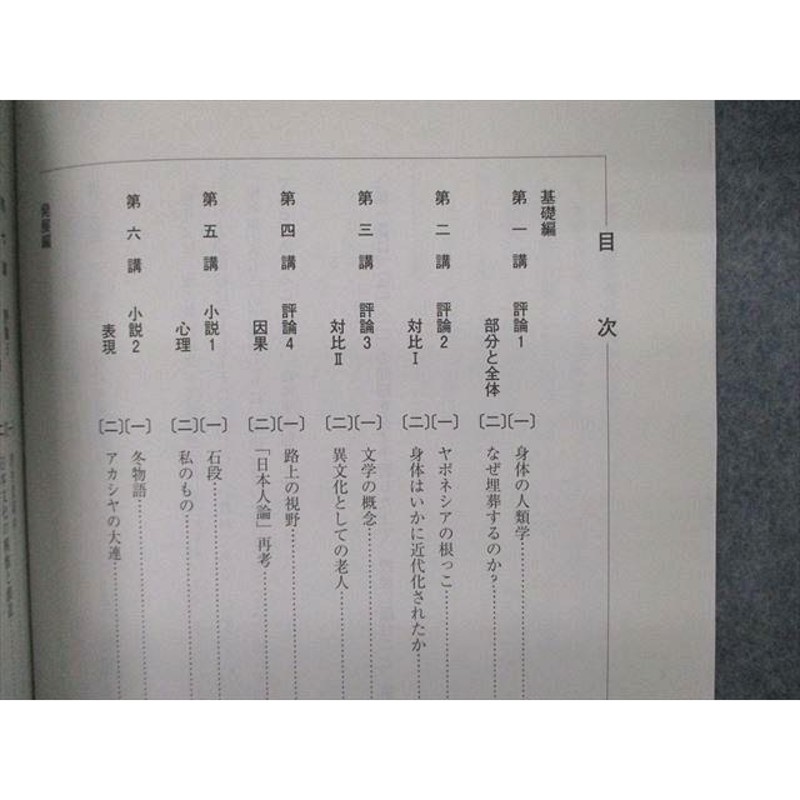 目次
基礎編
第一講 評論1 部分と全体
〔一〕身体の人類学
〔二〕なぜ埋葬するのか?
第二講 評論2 対比Ⅰ
〔一〕ヤポネシアの根っこ
〔二〕身体はいかに近代化されたか
第三講 評論3 対比Ⅱ
〔一〕文学の概念
〔二〕異文化としての老人
第四講 評論4 因果
〔一〕路上の視野
〔二〕「日本人論」再考
第五講 小説1 心理
〔一〕石段
〔二〕私のもの
第六講 小説2 表現
〔一〕冬物語
〔二〕アカシヤの大連
発展編